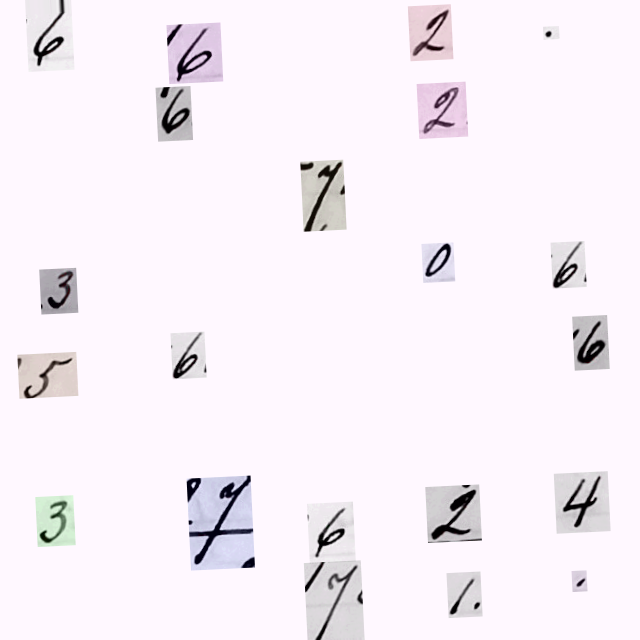 6 6 2 .
6 2
7
3 0 6
5 6 6
3 7 6 2 4
7 1. .